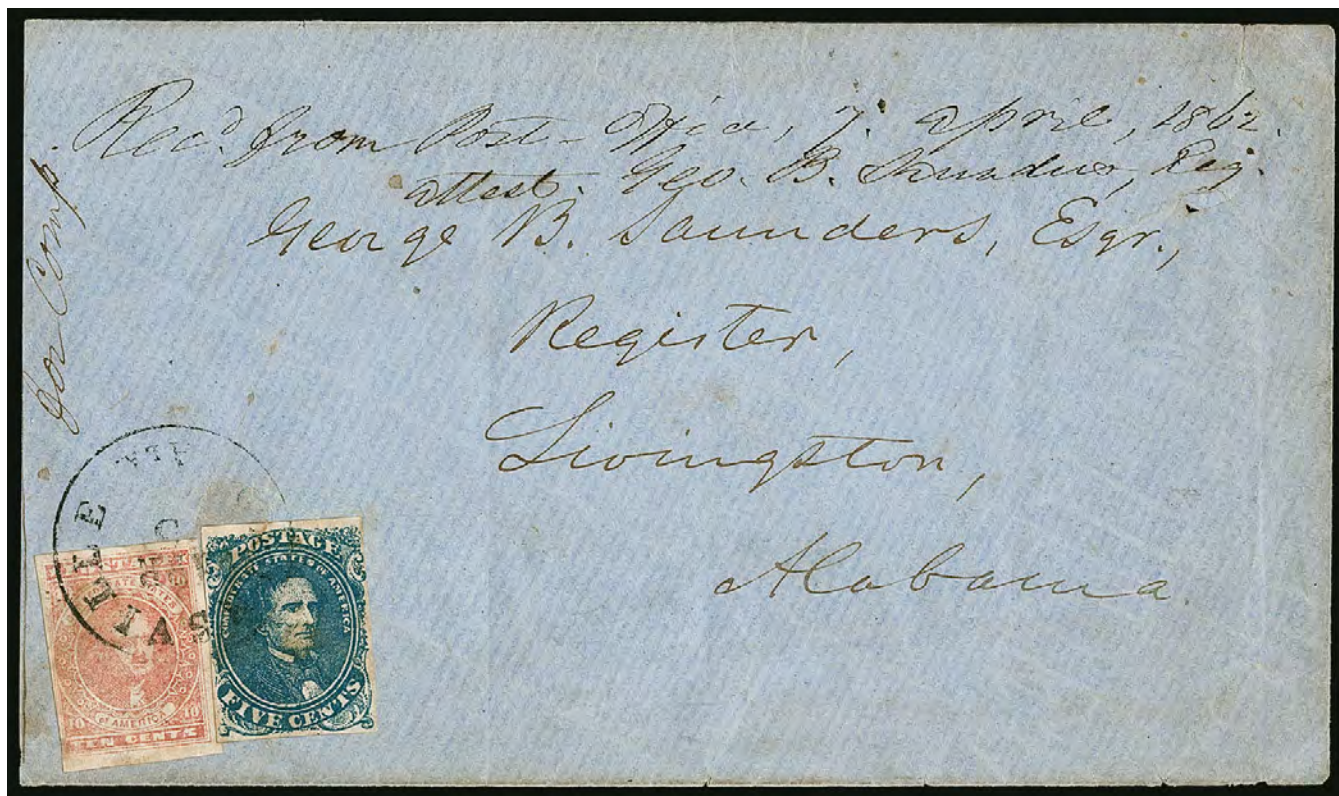 Rec'd. from Post-Office, 7. April, 1862.
attest. Geo. B. Saunders, Reg.
George B. Saunders, Esqr.,
Register,
Livingston,
Alabama.
for Comp.
POSTAGE
CONFEDERATE STATES OF AMERICA
FIVE CENTS
STATES
of AMERICA
10 10
TEN CENTS